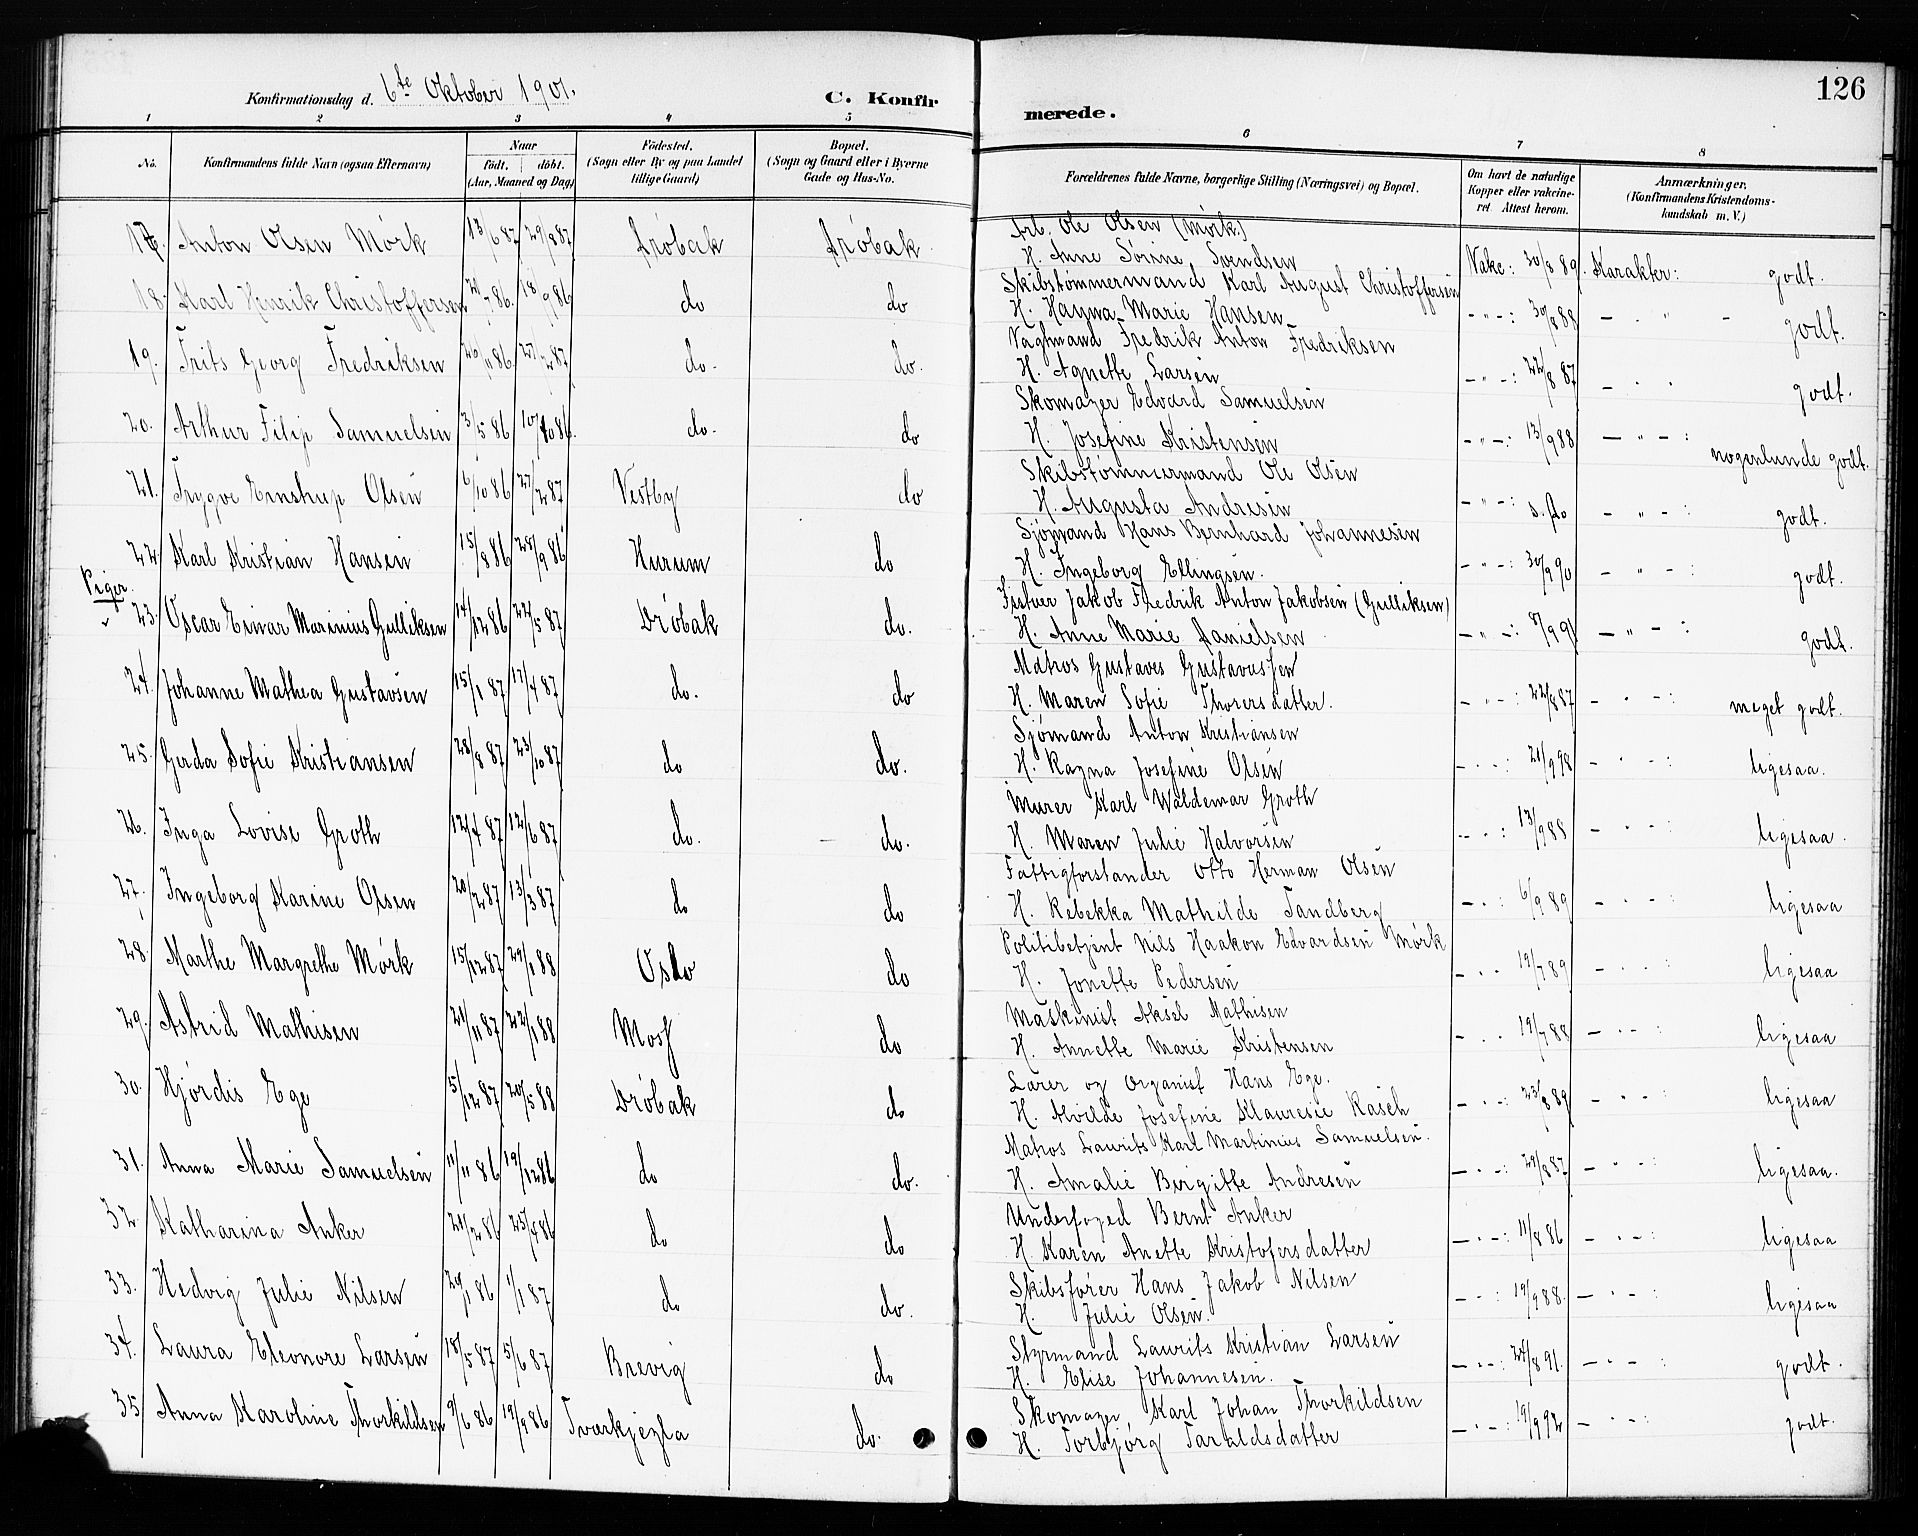 126
Konfirmationsdag d. 6te Oktober 1901.
C. Konfir
merede.
1 2 3 4 5 6 7 8
No. Konfirmandens fulde Navn (ogsaa Efternavn) Naar født. døbt. (Aar, Maaned og Dag) Fødested. (Sogn eller By og paa Landet tillige Gaard) Bopæl. (Sogn og Gaard eller i Byerne Gade og Hus-No. Forældrenes fulde Navne, borgerlige Stilling (Næringsvei) og Bopæl. Om havt de naturlige Kopper eller vakcineret. Attest herom. Anmærkninger. (Konfirmandens Kristendomskundskab m. V.)
17. Anton Olsen Mørk 13/6 87 29/8 87 Drøbak Drøbak Arb. Ole Olsen (Mørk)
H. Anne Sørine Svendsen Vakc: 30/8 89. Karakter: godt.
18. Karl Henrik Christoffersen 21/7 86. 18/9 86 do do Skibstømmermand Karl August Christoffersen
H. Hanna Marie Hansen - " - : 30/8 88 - " - godt.
19. Frits Georg Fredriksen 26/11 86. 27/2 87 do. do. Vagtmand Fredrik Anton Fredriksen
H. Agnette Larsen - " - : 22/8 87 - . . godt.
20. Arthur Filip Samuelsen 3/5 86 10/10 86. do. do Skomager Edvard Samuelsen
H. Josefine Kristensen - " - : 13/9 88 - " - : nogenlunde godt.
21. Trygve Ernstrup Olsen 6/10 86 27/2 87 Vestby do Skibstømmermand Ole Olsen
H. Augusta Andresen - " - : s. D. - " - : godt.
22. Karl Kristian Hansen 15/8 86 28/9 86 Hurum do Sjømand Hans Bernhard Johannesen
H. Ingeborg Ellingsen. - " - : 30/9 90 - " - : godt.
Piger.
23. Oscar Einar Marinius Gulliksen 14/12 86 22/5 87 Drøbak do. Fisker Jakob Fredrik Anton Jakobsen (Gulliksen)
H. Anne Marie Danielsen - " - : 8/9 91 - " - : godt.
24. Johanne Mathea Gustavsen 15/1 87 17/4 87 do. do Matros Gustavus Gustavussen
H. Maren Sofie Thorersdatter. - " - : 22/8 87 - . - : meget godt.
25. Gerda Sofie Kristiansen 28/8 87 23/10 87 do do. Sjømand Anton Kristiansen
H. Ragna Josefine Olsen - . - : 21/9 98 - . - : ligesaa.
26. Inga Lovise Groth 12/4 87 12/6 87 do. do. Murer Karl Waldemar Groth
H. Maren Julie Halvorsen - . - : 13/9 88 - . - : ligesaa.
27. Ingeborg Karine Olsen 20/2 87 13/3 87 do do Fattigforstander Otto Herman Olsen
H. Rebekka Mathilde Tandberg - . : 6/9 89 - . - : ligesaa
28. Marthe Margrethe Mørk 15/12 87 29/1 88 Oslo do Politibetjent Nils Haakon Edvardsen Mørk
H. Jonette Pedersen - . . 19/7 89 - . - : ligesaa
29. Astrid Mathisen 21/11 87 22/1 88 Moss do Maskinist Aksel Mathisen
H. Annette Marie Kristensen - . . 19/7 88 - . - : ligesaa
30. Hjørdis Ege 5/12 87 20/5 88 Drøbak do Lærer og Organist Hans Ege.
H. Alvilde Josefine Klauresie Rasch - . - : 23/8 89 - . - : ligesaa
31. Anna Marie Samuelsen 11/11 86 19/12 86 do do. Matros Laurits Karl Martinius Samuelsen.
H. Amalie Birgitte Andresen - . - : 29/8 87 - . - : ligesaa.
32. Katharina Anker 21/2 86 25/4 86 do do Underfoged Bernt Anker
H. Karen Anette Kristofersdatter - . - : 11/8 86 - . - : ligesaa
33. Hedvig Julie Nilsen 20/1 86 1/1 87 do do. Skibsfører Hans Jakob Nilsen
H. Julie Olsen. - . : 19/9 88. - . - : ligesaa
34. Laura Eleonore Larsen 18/5 87 5/6 87 Brevig do Styrmand Laurits Kristian Larsen
H. Elise Johannesen. - . - : 24/8 91. - . - : godt.
35 Anna Karoline Thorkildsen 9/6 86 19/9 86 do. Skomager, Karl Johan Thorkildsen
H. Torbjørg Taraldsdatter - . - : 19/9 92 - . - : godt.